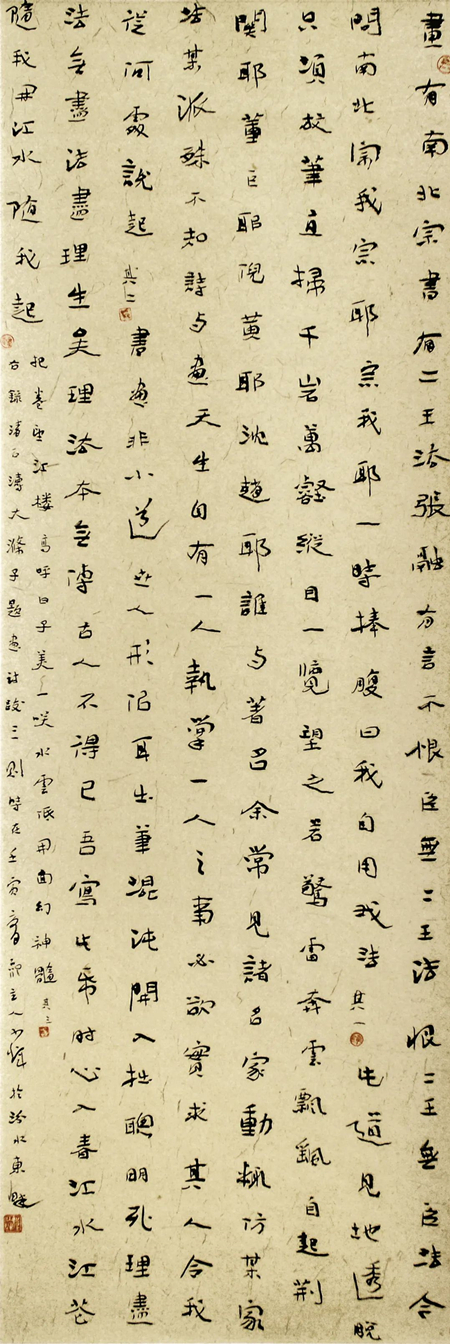 畫有南北宗書有二王法張融有言不恨臣無二王法恨二王無臣法今
問南北宗我宗耶宗我耶一時捧腹曰我自用我法 其一 此道見地透脫
只須放筆直掃千岩萬壑縱目一覽望之若驚雷奔雲飄飄自起荆
関耶董巨耶倪黃耶沈趙耶誰與著名余常見諸名家動輒仿某家
法某派殊不知詩與畫天生自有一人執掌一人之事必欲實求其人令我
從何處說起 其二 書畫非小道世人形似耳出筆混沌開入拙聰明死理盡
法無盡法盡理生矣理法本無傳古人不得已吾寫此紙時心入春江水江花
隨我開江水随我起
把卷望江樓高呼曰子美一咲水雲低開圖幻神髓 其三
右錄清石濤大滌子題畫詩跋三則時在壬寅 主人 於汾水東畔